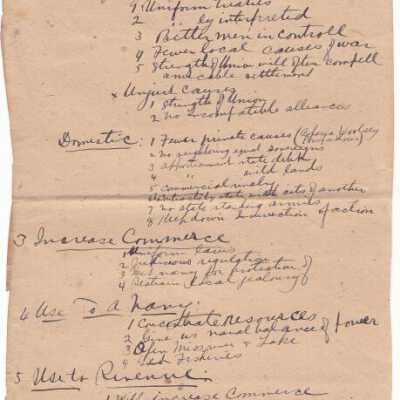 1 Uniform treaties
2 " " ly interpreted
3 Better men in controll
4 Fewer local causes of war
5 Strength of Union will often compell
amicable settlement
x Unjust causes
1 Strength of Union
2 No incompatible alliances
Domestic: 1 Fewer private causes (
2 No neighboring equal sovereigns
3 apportioned state debts
4 " wild lands
5 Commercial rivalry
state acts of another
7 No state standing armies
8 Keep down indirection of action
3 Increase Commerce
1 Uniform laws
2 Judicious regulation
3 navy for protection of
4 Restrain local jealousy
4 Use To A Navy:
1 Concentrate resources
2 Give us naval balance of power
3 Open Missouri & Lake
4 Fisheries
5 Use to Revenue:
1 Will Increase Commerce